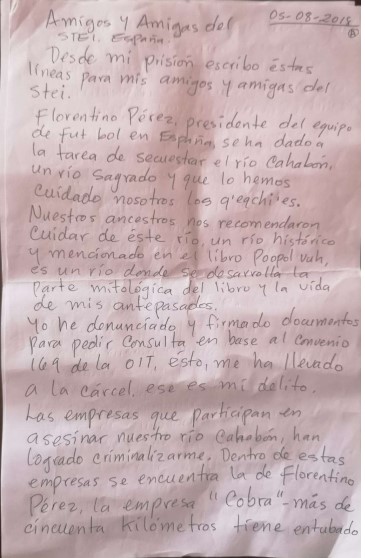 Amigos y Amigas del 05-08-2018
STEI. España.
Desde mi prisión escribo éstas
líneas para mis amigos y amigas del
Stei.
Florentino Pérez, presidente del equipo
de fut bol en España, se ha dado a
la tarea de secuestar el río Cahabón,
un río sagrado y que lo hemos
cuidado nosotros los q'eqchi'es.
Nuestros ancestros nos recomendaron
cuidar de éste río, un río histórico
y mencionado en el libro Poopol vuh,
es un río donde se desarrolla la
parte mitológica del libro y la vida
de mis antepasados.
Yo he denunciado y firmado documentos
para pedir consulta en base al convenio
169 de la OIT, ésto, me ha llevado
a la cárcel, ese es mi delito.
Las empresas que participan en
asesinar nuestro río Cahabón, han
logrado criminalizarme. Dentro de estas
empresas se encuentra la de Florentino
Pérez, la empresa "Cobra" - más de
cincuenta kilómetros tiene entubado